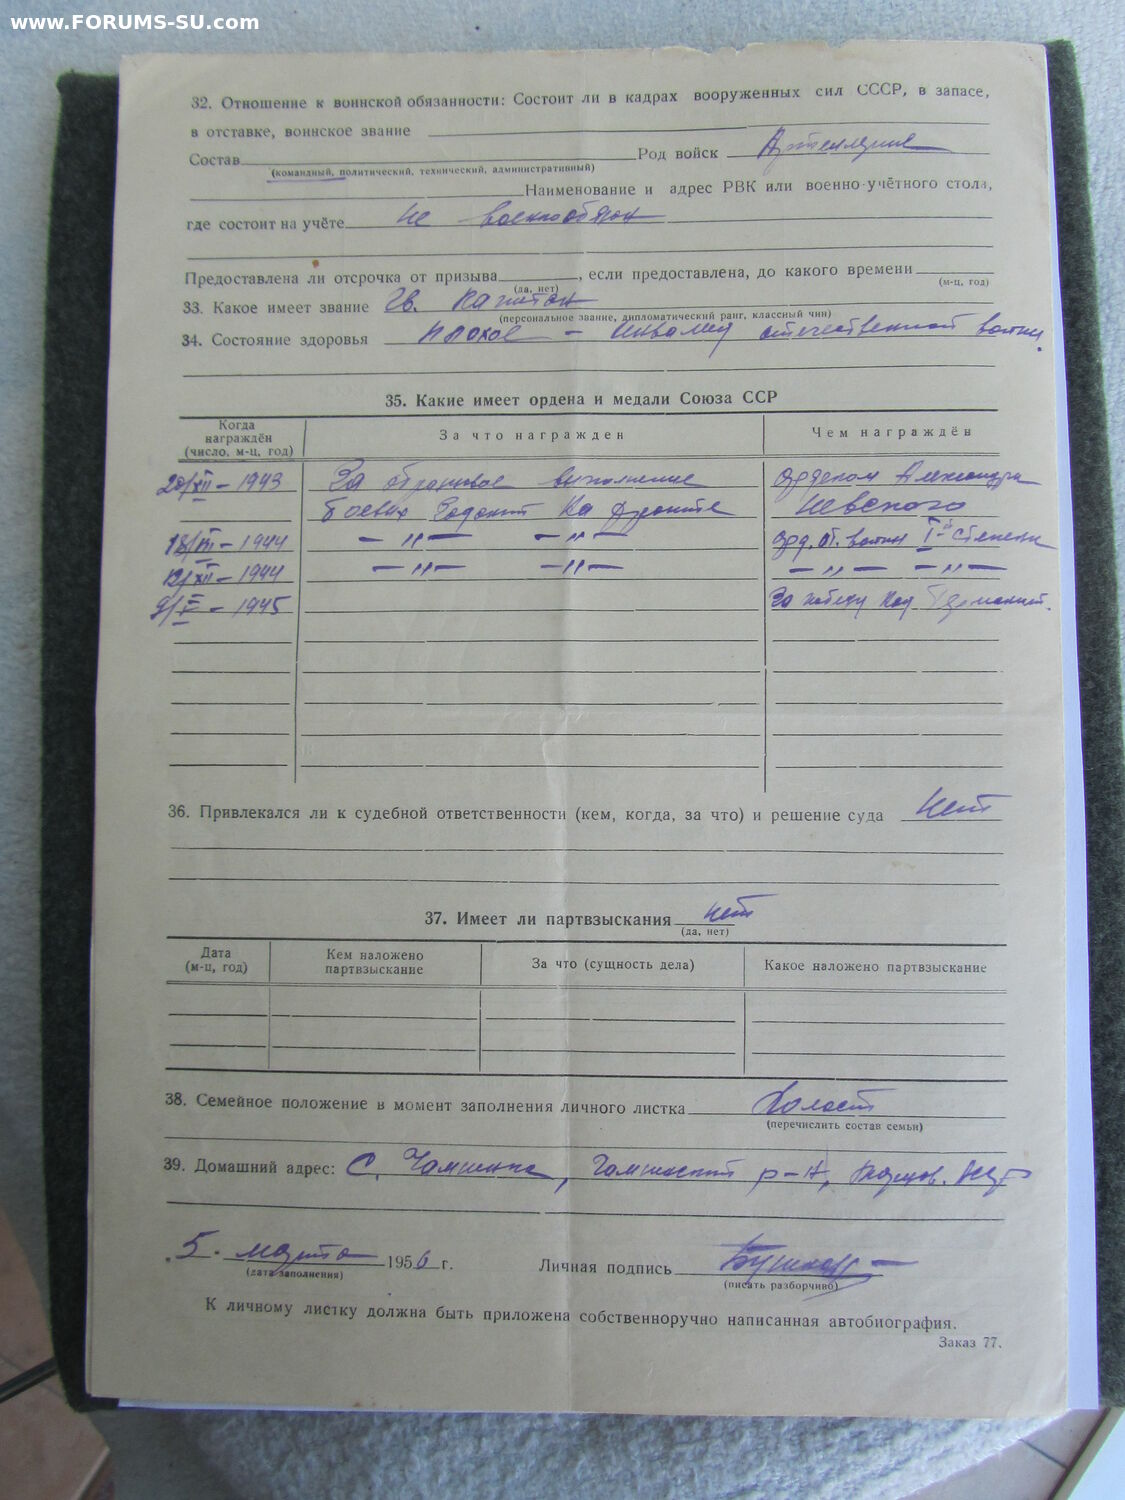 www.FORUMS-SU.com
32. Отношение к воинской обязанности: Состоит ли в кадрах вооруженных сил СССР, в запасе,
в отставке, воинское звание
Состав Род войск Артиллерия
(командный, политический, технический, административный)
Наименование и адрес РВК или военно-учётного стола,
где состоит на учёте не военнообязан
Предоставлена ли отсрочка от призыва , если предоставлена, до какого времени
(да, нет) (м-ц, год)
33. Какое имеет звание Гв. капитан
(персональное звание, дипломатический ранг, классный чин)
34. Состояние здоровья плохое – инвалид отечественной войны.
35. Какие имеет ордена и медали Союза ССР
Когда награждён (число, м-ц, год) За что награжден Чем награждён
20/XII – 1943 За образцовое выполнение орденом Александра
боевых заданий на фронте Невского
18/ – 1944 – " – – " – орд. от. войны I-й степени
12/XII – 1944 – " – – " – – " – – " –
9/V – 1945 За победу над Германией.
36. Привлекался ли к судебной ответственности (кем, когда, за что) и решение суда нет
37. Имеет ли партвзыскания нет
(да, нет)
Дата (м-ц, год) Кем наложено партвзыскание За что (сущность дела) Какое наложено партвзыскание
38. Семейное положение в момент заполнения личного листка Холост
(перечислить состав семьи)
39. Домашний адрес: С. р-н,
5. марта 1956 г. Личная подпись
(дата заполнения) (писать разборчиво)
К личному листку должна быть приложена собственноручно написанная автобиография.
Заказ 77.